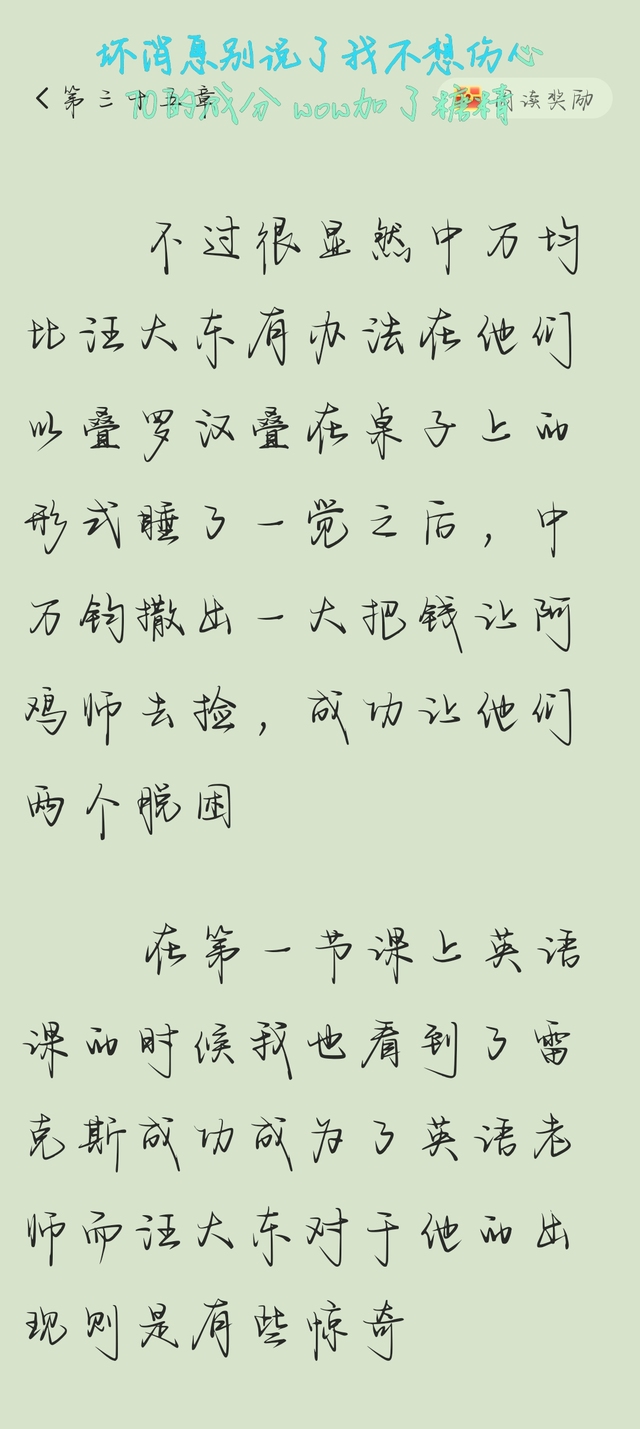 坏消息别说了我不想伤心
第三十五章
70的成分 wow加了糖精
阅读奖励
不过很显然中万均
比汪大东有办法在他们
以叠罗汉叠在桌子上的
形式睡了一觉之后，中
万钧撒出一大把钱让阿
鸡师去捡，成功让他们
两个脱困
在第一节课上英语
课的时候我也看到了雷
克斯成功成为了英语老
师而汪大东对于他的出
现则是有些惊奇